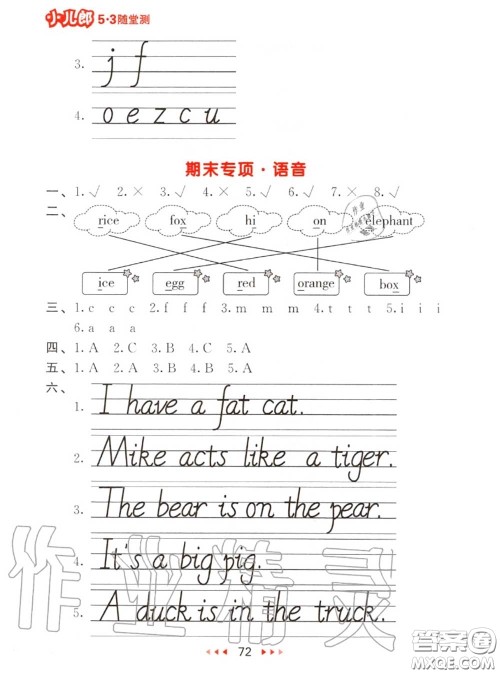 小儿郎 5·3随堂测
3. j f
4. o e z c u
期末专项·语音
一、1.√ 2.× 3.√ 4.× 5.√ 6.× 7.× 8.√
二、
rice fox hi on elephant
ice egg red orange box
三、1.c c c 2.f f f 3.m m m 4.t t t 5.i i i
6.a a a
四、1.A 2.C 3.B 4.C 5.A
五、1.A 2.A 3.B 4.B 5.A
六、
1. I have a fat cat.
2. Mike acts like a tiger.
3. The bear is on the pear.
4. It's a big pig.
5. A duck is in the truck.
作业精灵
72
答案圈
MXQE.COM